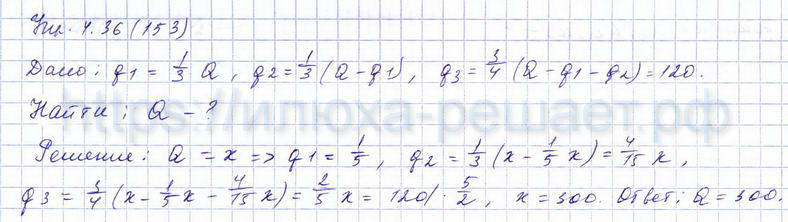 Нц. 4.36 (153)
Дано: q1 = 1/3 Q, q2 = 1/3 (Q - q1), q3 = 3/4 (Q - q1 - q2) = 120.
Найти: Q - ?
https://илюха-решает.рф
Решение: Q = x => q1 = 1/5, q2 = 1/3 (x - 1/5 x) = 4/15 x,
q3 = 3/4 (x - 1/5 x - 4/15 x) = 2/5 x = 120 | · 5/2, x = 300. Ответ: Q = 300.